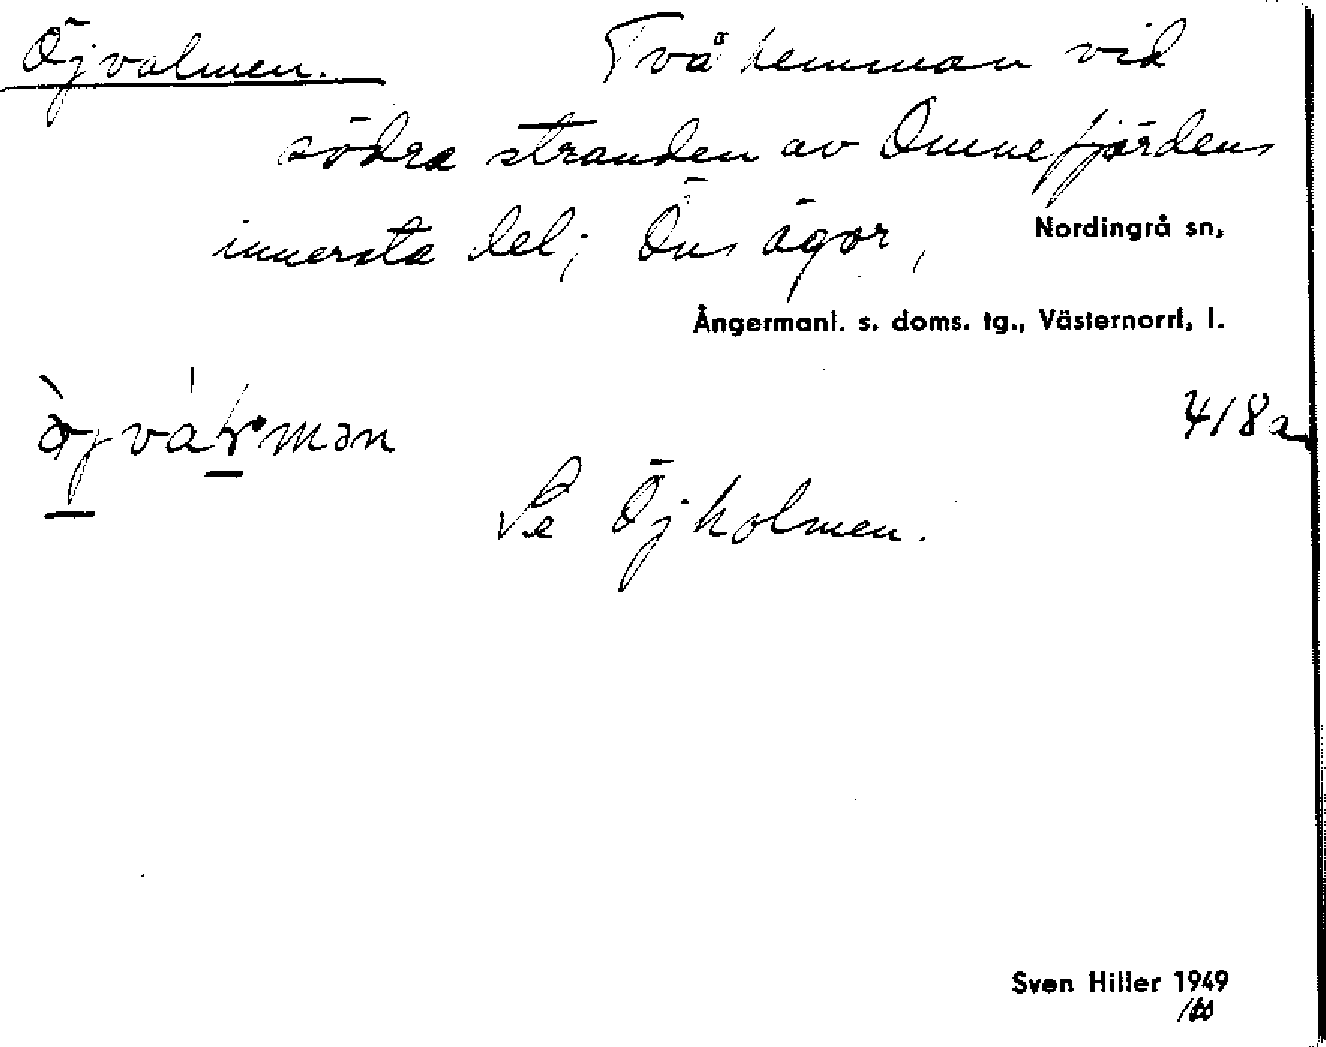 Öjvalmen. Två hemman vid
södra stranden av Omnefjärdens
innersta del; Öns ägor,
Nordingrå sn,
Ångermanl. s. doms. tg., Västernorrl. l.
418a
Se Öjholmen.
Sven Hiller 1949